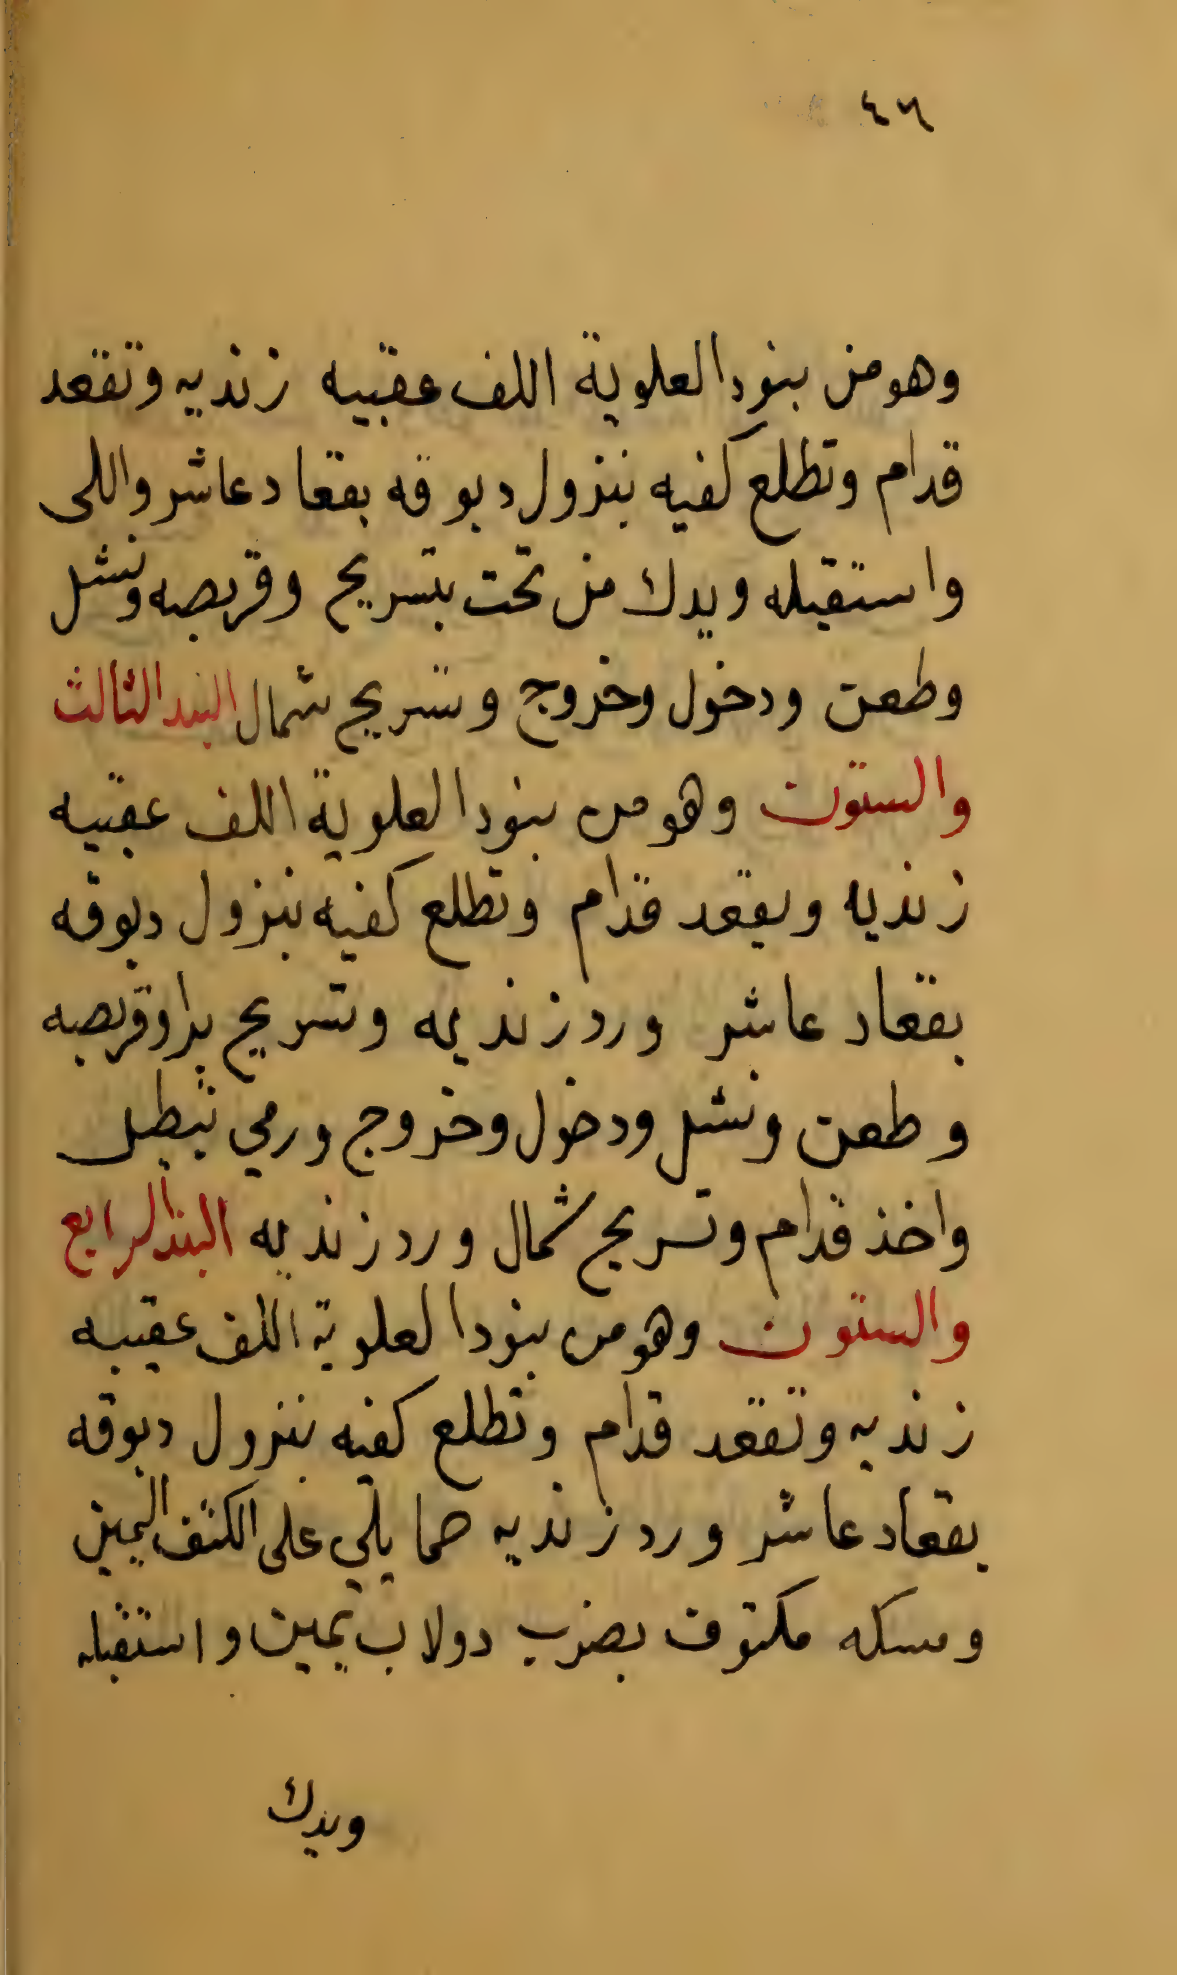 ٤٦
وهو من بنود العلوية اللف عقبيه زنديه وتقعد
قدام وتطلع كفيه بنزول دبوقه بقعاد عاشر واللى
واستقبله ويدك من تحت بتسريح وقربصه ونشل
وطعن ودخول وخروج وتسريح شمال البند الثالث
والستون وهو من بنود العلوية اللف عقبيه
زنديه ويقعد قدام وتطلع كفيه بنزول دبوقه
بقعاد عاشر ورد زنديه وتسريح برا وقربصه
وطعن ونشل ودخول وخروج ورمي تبطيل
واخذ قدام وتسريح شمال ورد زنديه البند الرابع
والستون وهو من بنود العلوية اللف عقبيه
زنديه وتقعد قدام وتطلع كفيه بنزول دبوقه
بقعاد عاشر ورد زنديه مما يلي على الكتف اليمين
ومسكه مكتوف بضرب دولاب يمين واستقبله
ويدك